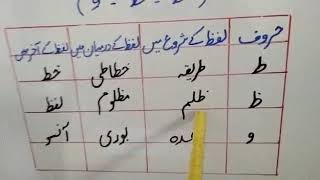 حروف لفظ کے شروع میں لفظ کے درمیان میں لفظ کے آخر میں
ط طریقہ خطاطی خط
ظ ظلم مظلوم لفظ
و بوری آنسو